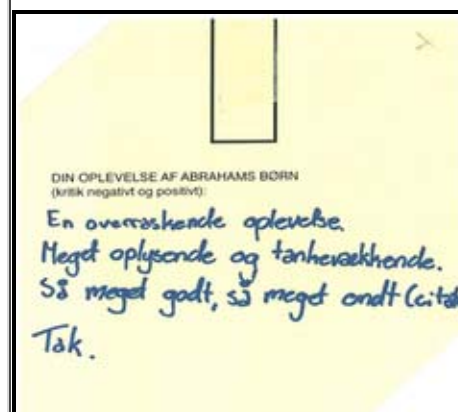 DIN OPLEVELSE AF ABRAHAMS BØRN
(kritik negativt og positivt):
En overraskende oplevelse.
Meget oplysende og tankevækkende.
Så meget godt, så meget ondt (citat
Tak.